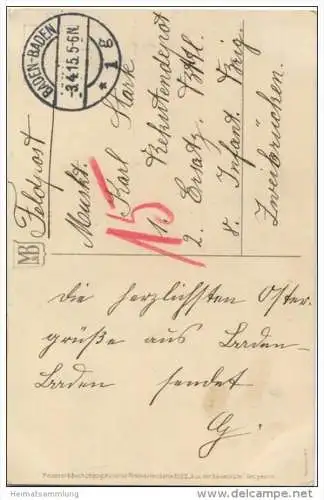 BADEN-BADEN
-3.4.15.5-6N.
* 1 g
Feldpost
Muskt.
Karl Stark
1. Rekrutendepot
2. Ersatz. Batl.
8. Infant. Brig.
Zweibrücken.
15
MB
Die herzlichsten Oster-
grüße aus Baden-
Baden sendet
G.
Heimatsammlung
delcampe.net